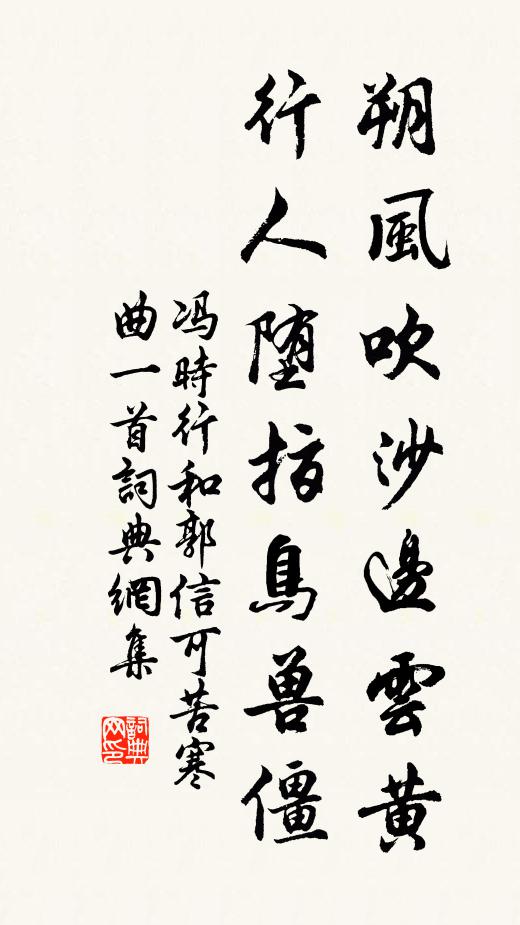 朔風吹沙邊雲黃
行人堕指鳥兽僵
冯時行和郭信可苦寒
曲一首詞典網集
詞典
网印